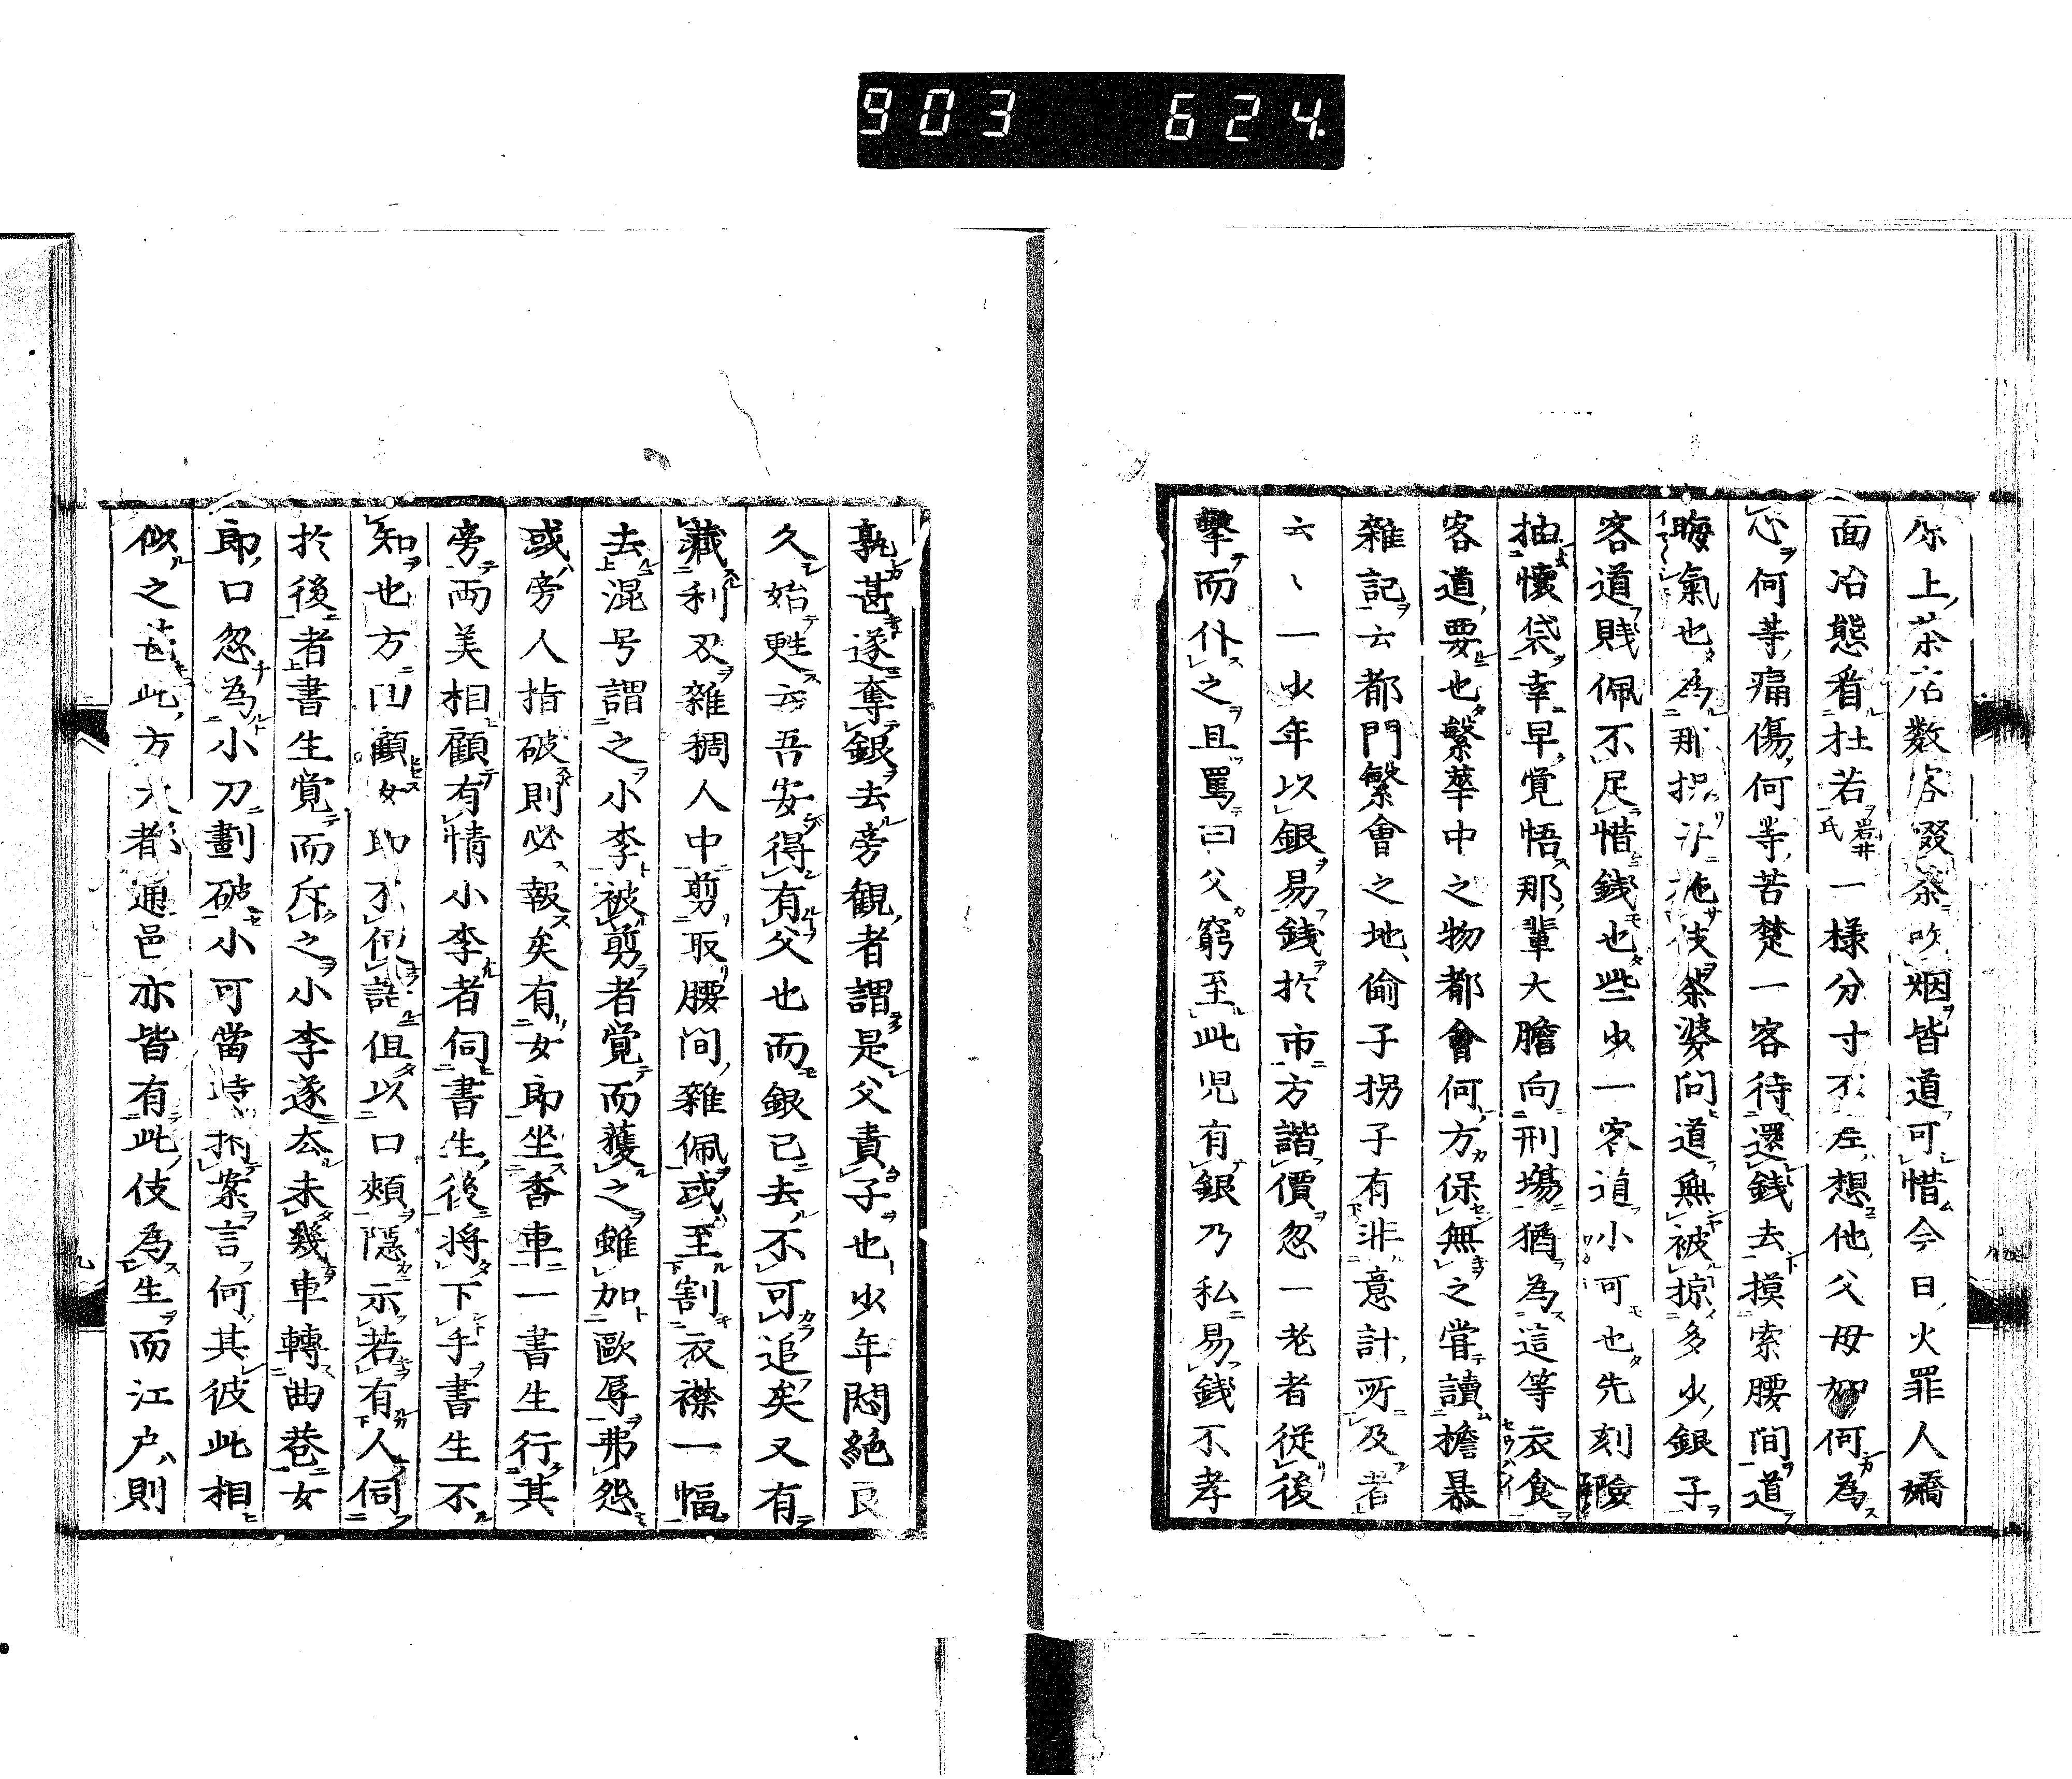 903 624
尔上茶店数客啜茶吹烟皆道可惜今日火罪人嬌
面冶態看杜若岩井氏一様分寸不左想他父母如何為
心何等痛傷何等苦楚一客待還銭去摸索腰間道
晦氣也為那拐 施伎祭婆問道無被掠多少銀子
客道賎佩不足惜銭也些少一客道小可也先刻險
抽懐袋幸早覚悟那輩大膽向刑場猶為這等衣食
客道要也繁華中之物都會何方保無之甞讀檐暴
雜記云都門繁會之地偷子拐子有非意計所及者
云〻一少年以銀易銭於市方諧價忽一老者從後
撃而仆之且罵曰父窮至此児有銀乃私易銭不孝
孰甚遂奪銀去旁観者謂是父責子也少年悶絶良
久始甦云吾安得有父也而銀已去不可追矣又有
藏利刃雜稠人中剪取腰间雜佩或至割衣襟一幅
去混号謂之小李被剪者覚而獲之雖加歐辱弗怨
或旁人指破則必報矣有女郎坐香車一書生行其
旁両美相顧有情小李者伺書生後将下手書生不
知也方回顧女郎不便語但以口頰隠示若有人伺
於後者書生覚而斥之小李遂去未幾車轉曲巷女
郎口忽為小刀劃破小可當時拆案言何其彼此相
似之甚此方大都通邑亦皆有此伎為生而江戸則